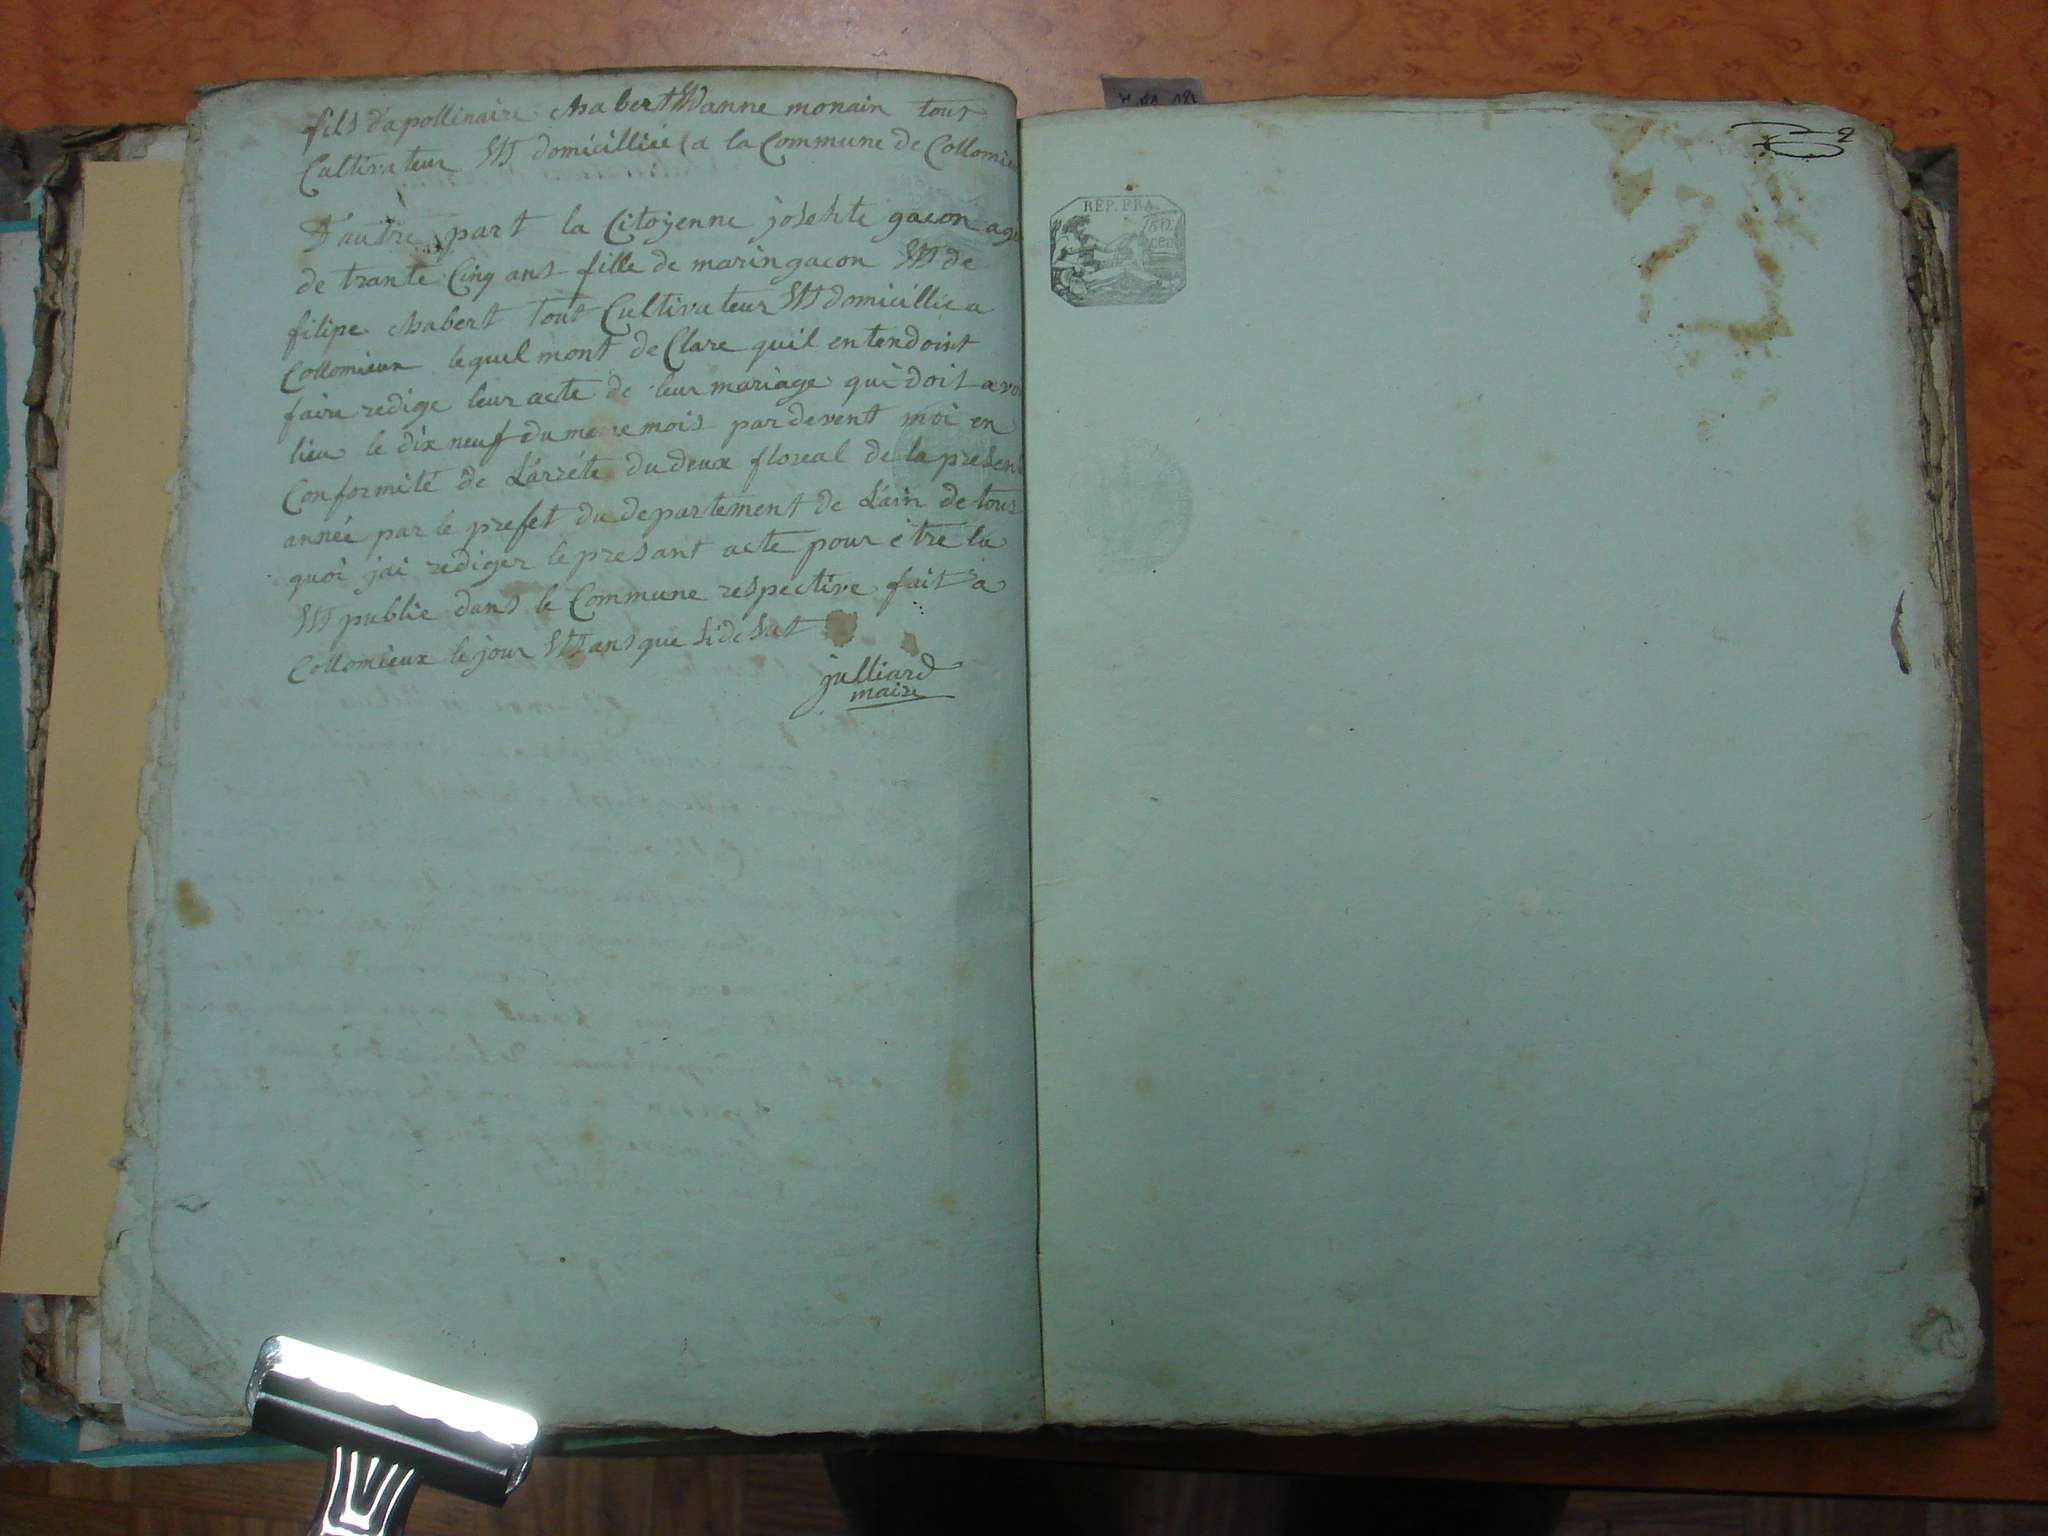 fils d'apollinaire chabert Et danne monain tout
Cultivateur Et domicilliéé a la Commune de Collomieu
D'autre part la Citoyenne josehte gacon agé
de trante Cinq ans fille de marin gacon Et de
filipe chabert tout Cultivateur Et domicillié a
Collomieux lequel mont de Clare quil entendoint
faire redige leur acte de leur mariage qui doit avoi
lieu le dix neuf du meme mois par devent moi en
Conformité de L'arréte du deux floreal de la present
année par le prefet du departement de L'ain de tout
quoi jai rediger le presant acte pour étre lu
Et publie dans le Commune respective fait a
Collomieux le jour Et ans que si de sut
julliard
maire
REP. FRA.
50
cen
9